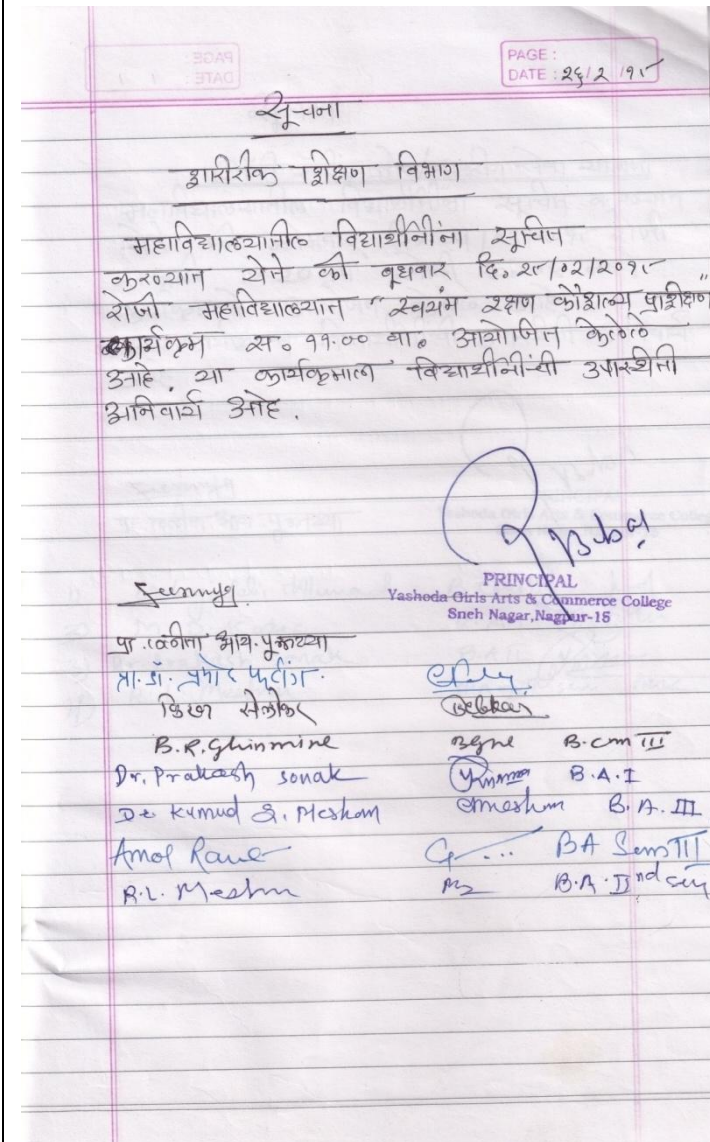 PAGE :
DATE : २६/२/१८
सूचना
शारीरीक शिक्षण विभाग
महाविद्यालयातील विद्यार्थीनींना सूचित
करण्यात येते की बूधवार दि. २८/०२/२०१८
रोजी महाविद्यालयात " स्वयंम रक्षण कौशल्य प्रशिक्षण "
कार्यक्रम स. ११.०० वा. आयोजित केलेले
आहे. या कार्यक्रमाला विद्यार्थीनींची उपस्थिती
अनिवार्य आहे.
PRINCIPAL
Yashoda Girls Arts & Commerce College
Sneh Nagar, Nagpur-15
प्रा.
प्रा. डॉ. प्रमोद फटींग.
B.R. Ghinmine B.com III
Dr. Prakash sonak B.A.I
Dr Kumud S. Meshram B.A. III
Amol Raut BA Sem III
R.L. Meshram B.A. IInd sem